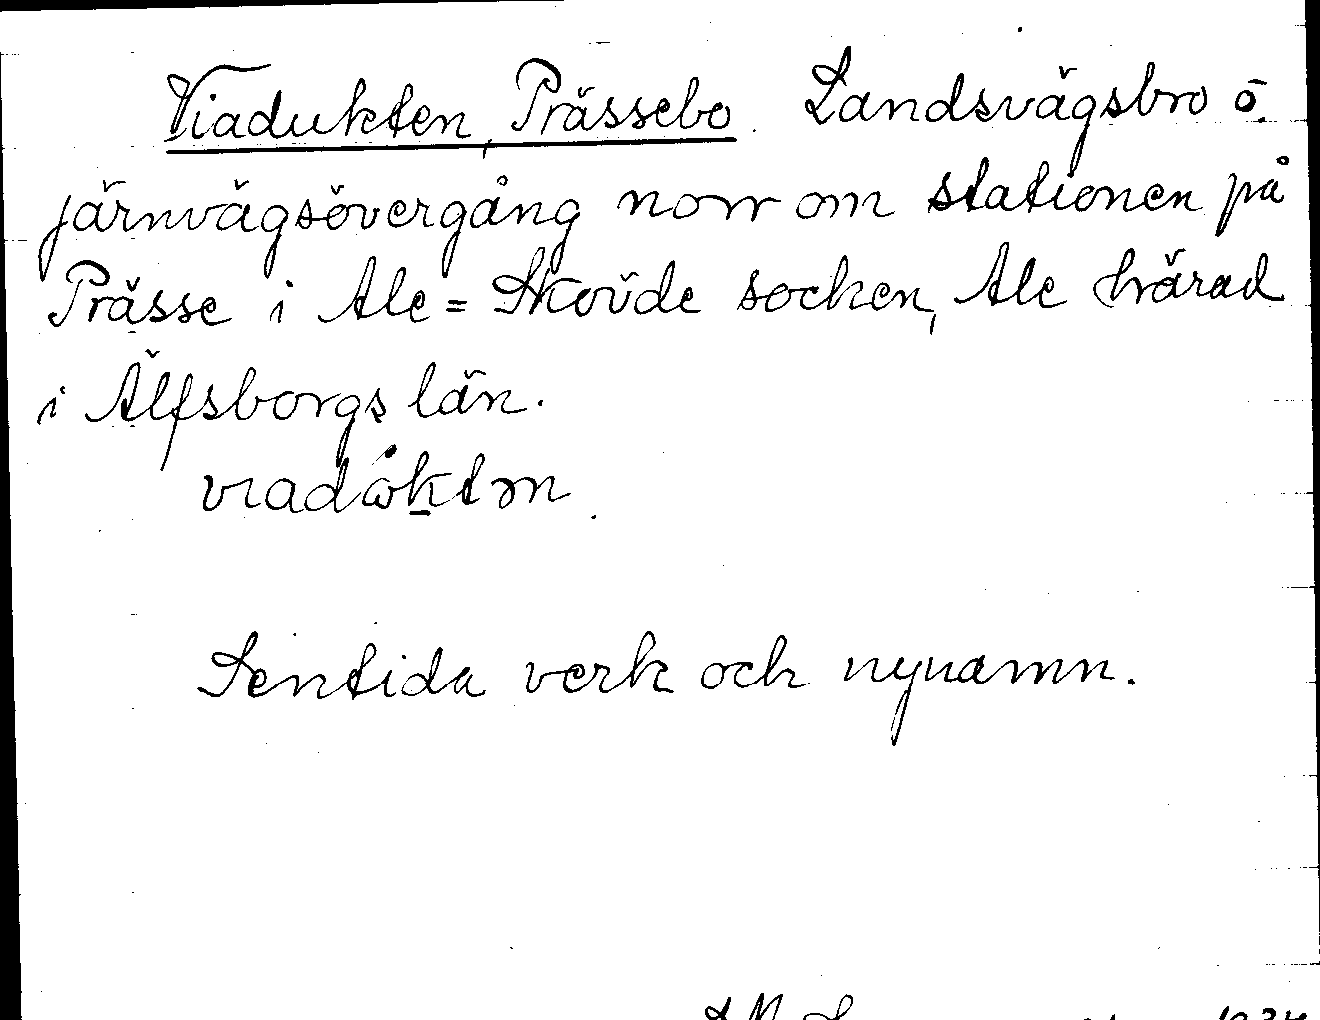 Viadukten, Prässebo. Landsvägsbro ö.
järnvägsövergång norr om stationen på
Prässe i Ale=Skövde socken, Ale härad
i Älfsborgs län.
Sentida verk och nynamn.